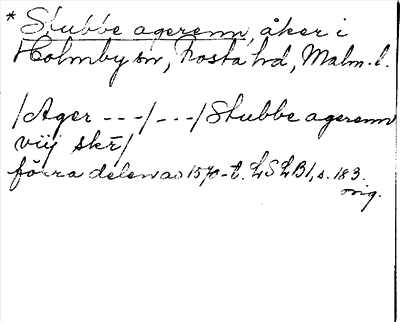 * Stubbe agerenn, åker i
Holmby sn, Frosta hd, Malm. l.
/Ager ---/---/Stubbe agerenn
viij skr/
förra delen av 1570-t. LSLB1, s. 183.
orig.